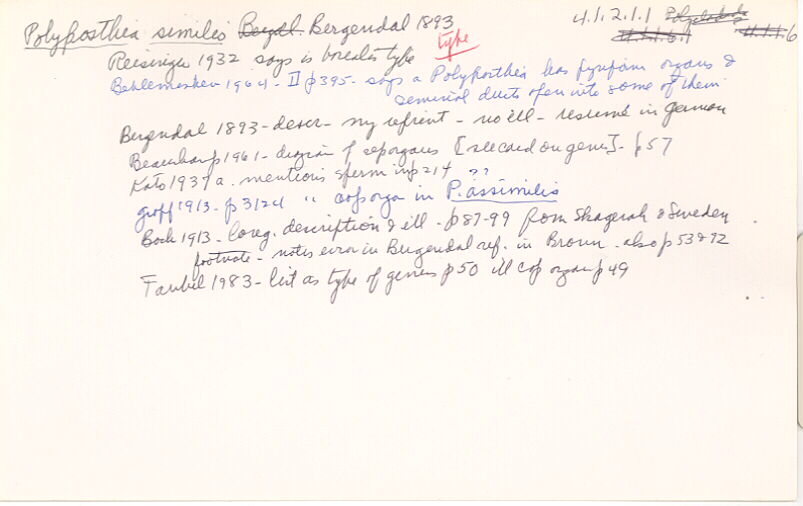 Polyposthia similis Bergendal 1893 4.1.2.1.1
type
Reisinger 1932 says is borealis type
Beklemeshev 1964 - II p 395 - says a Polyposthia has pyriform organs &
seminal ducts open into some of them
Bergendal 1893 - descr - my reprint - no ill - resumé in German
Beauchamp 1961 - diagram of rep organs [see card on genus] - p 57
Kato 1937a mentions sperm in p 214
??
Graff 1913 - p 3124 " cop orga in P. assimilis
Bock 1913 - long description & ill - p 87-99 from Skagerak & Sweden
footnote - notes error in Bergendal ref. in Bronn - also p 53 & 72
Faubel 1983 - list as type of genus p 50 ill cop organ p 49